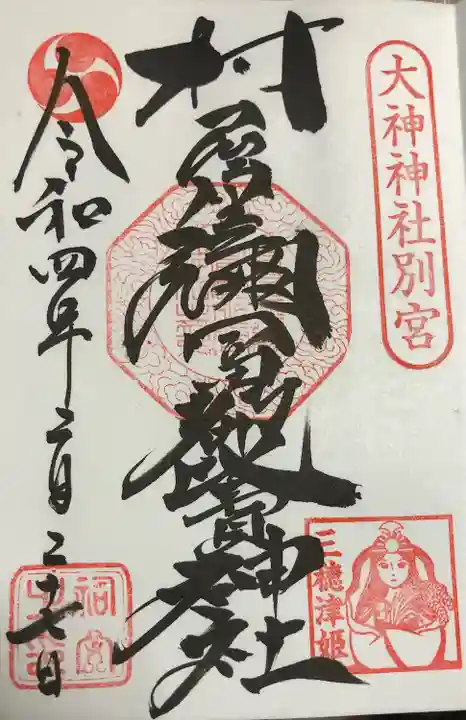 大神神社別宮
村屋坐彌冨都比賣神社
参拝
三穂津姫
令和四年二月二十七日